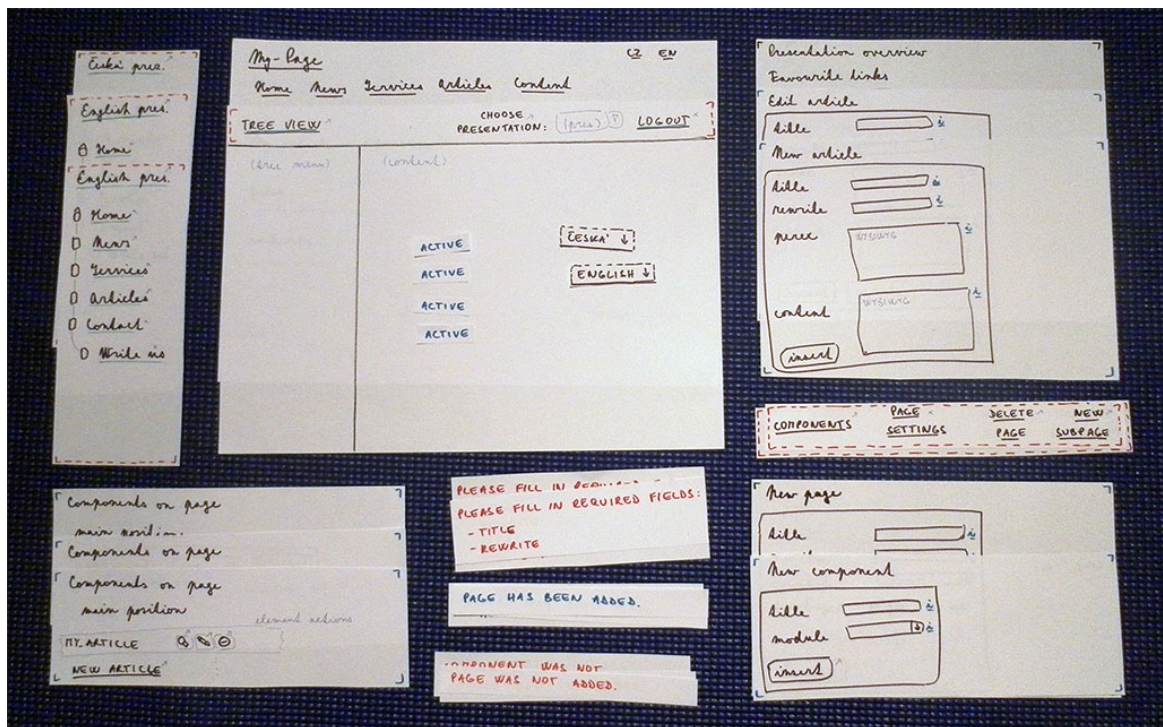 Česká prez.
English pres.
Home
English pres.
Home
News
Services
Articles
Contact
Write us
My-Page
CZ EN
Home News Services Articles Content
TREE VIEW
CHOOSE
PRESENTATION: (pres) LOGOUT
(tree menu)
(content)
ACTIVE
ACTIVE
ACTIVE
ACTIVE
ČESKÁ
ENGLISH
Presentation overview
Favourite links
Edit article
title
New article
title
rewrite
perex
WYSIWYG
content
WYSIWYG
insert
COMPONENTS
PAGE
SETTINGS
DELETE
PAGE
NEW
SUBPAGE
Components on page
main position
Components on page
Components on page
main position
element actions
MY ARTICLE
NEW ARTICLE
PLEASE FILL IN
PLEASE FILL IN REQUIRED FIELDS:
- TITLE
- REWRITE
PAGE HAS BEEN ADDED.
COMPONENT WAS NOT
PAGE WAS NOT ADDED.
New page
title
New component
title
module
insert